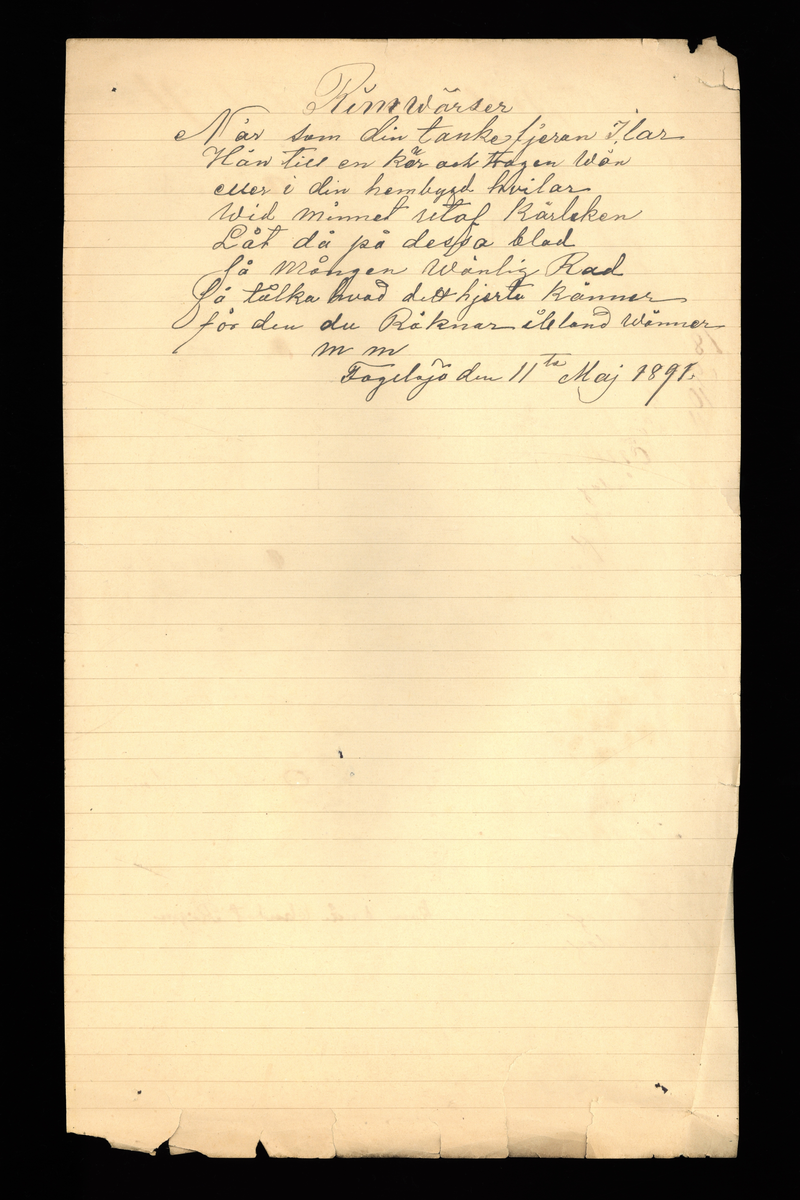 Rim Wärser
När som din tanke fjeran Ilar
Hän till en kär och Trogen Wän
eller i din hembygd hvilar
Wid minnet utaf Kärleken
Låt då på dessa blad
få mången Wänlig Rad
få tålka hvad ditt hjerta Känner
för den du Räknar ibland Wänner
m m
Fogelsjö den 11te Maj 1891.